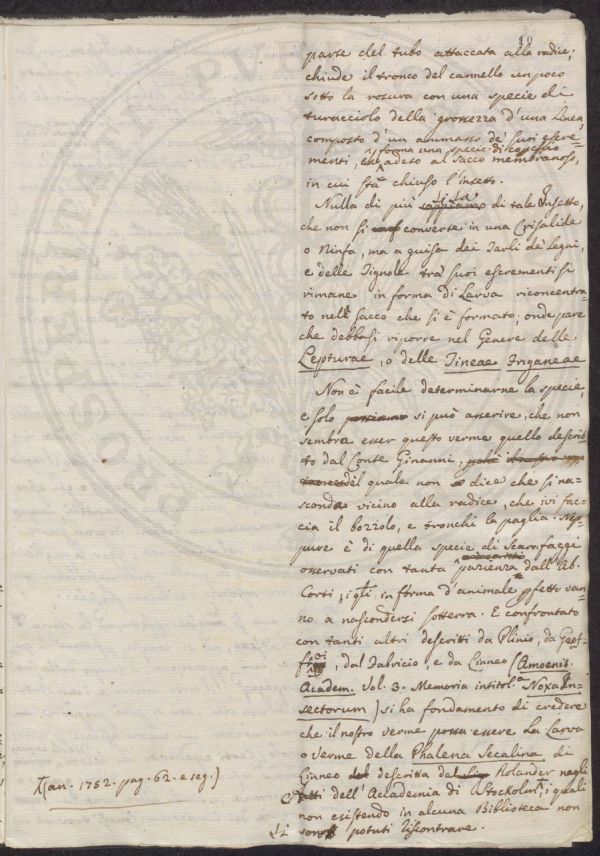 10
parte del tubo attaccata alla radice;
chiude il tronco del cannello un poco
sotto la rosura con una specie di
turacciolo della grossezza d'una Linea,
composto d'un ammasso de' suoi escre-
forma una specie di coperchio
menti, che adeso al sacco membranoso,
in cui sta chiuso l'insetto.
si sa
Nulla di più sappiamo di tale Insetto,
che non si converte in una Crisalide
o Ninfa, ma a guisa dei Tarli dei legni,
e delle Tignole tra' suoi escrementi si
rimane in forma di Larva riconcentra-
to nell' sacco che si è formato; onde pare
che debbasi riporre nel Genere delle
Lepturae, o delle Tineae Friganeae
Non è facile determinarne la specie,
e solo possiamo si può asserire, che non
sembra esser questo verme quello descrit-
to dal Conte Ginanni,
del quale non dice che si na-
sconda vicino alla radice, che ivi fac-
cia il bozzolo, e tronchi la paglia. Nep-
pure è di quella specie di Scarafaggi
osservati con tanta pazienza dall'Ab.
Corti, i qli in forma d'animale pfetto van-
no a nascondersi sotterra. E confrontato
con tanti altri descritti da Plinio, da Geof-
froi, dal Fabricio, e da Linneo (Amoenit.
Academ. Vol. 3. Memoria intitol.a Noxa In-
sectorum) si ha fondamento di credere
che il nostro verme possa essere La Larva
o verme della Phalena Secalina di
Linneo descritta dal Rolander negli
Atti dell'Accademia di Stockolm, i quali
non esistendo in alcuna Biblioteca non
si sono potuti riscontrare.
(an. 1752. pag. 62. e seg.)